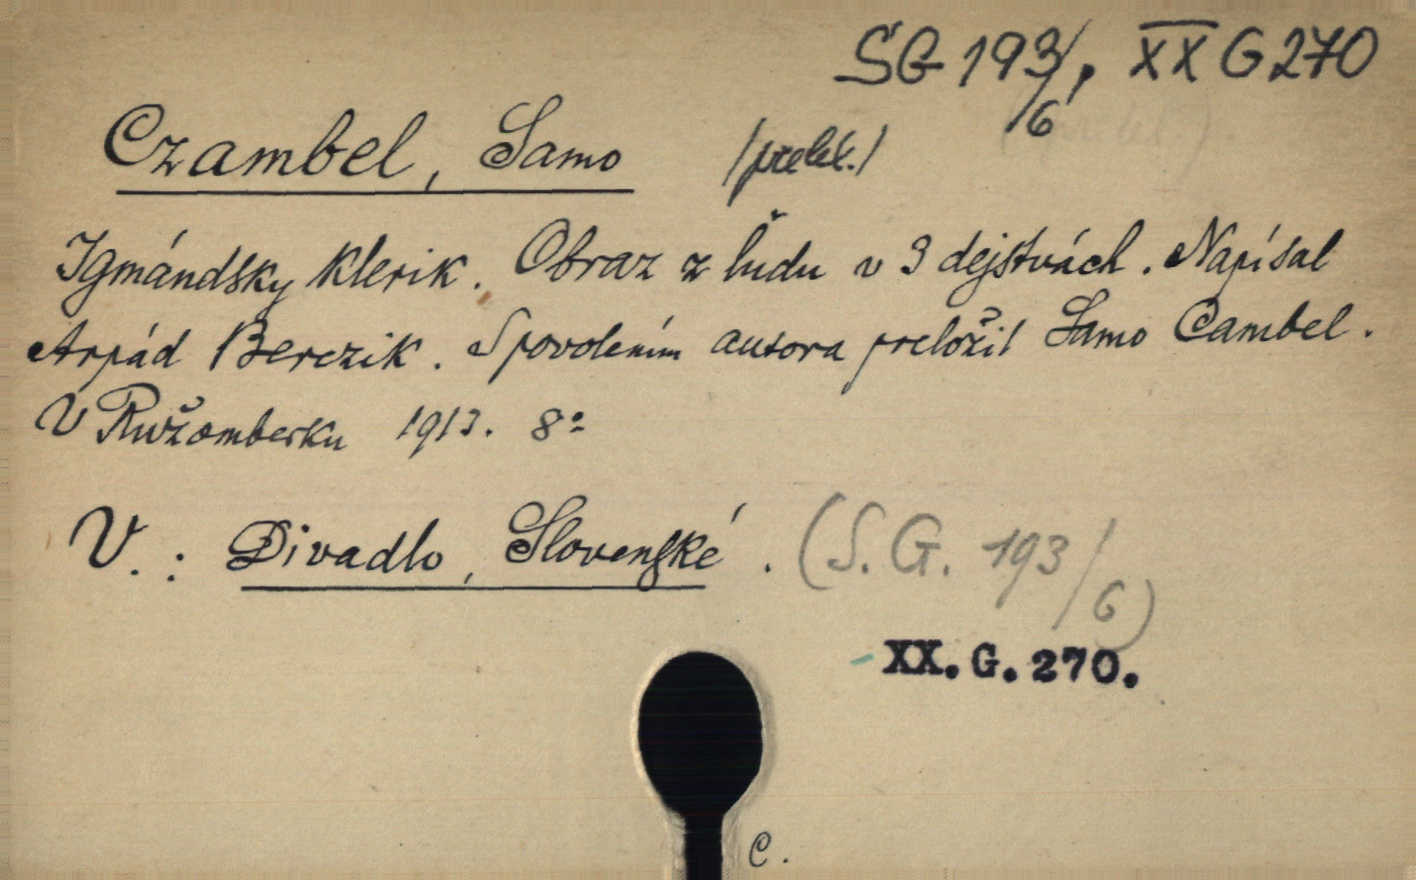 SG 193/6, XX G 270
Czambel, Samo /prelek./
Igmándsky klerik. Obraz z ľudu v 3 dejstvách. Napísal
Arpád Berczik. S povolením autora preložil Samo Cambel.
V Ružomberku 1913. 8°
V.: Divadlo, Slovenské. (S. G. 193/6)
XX. G. 270.
C.